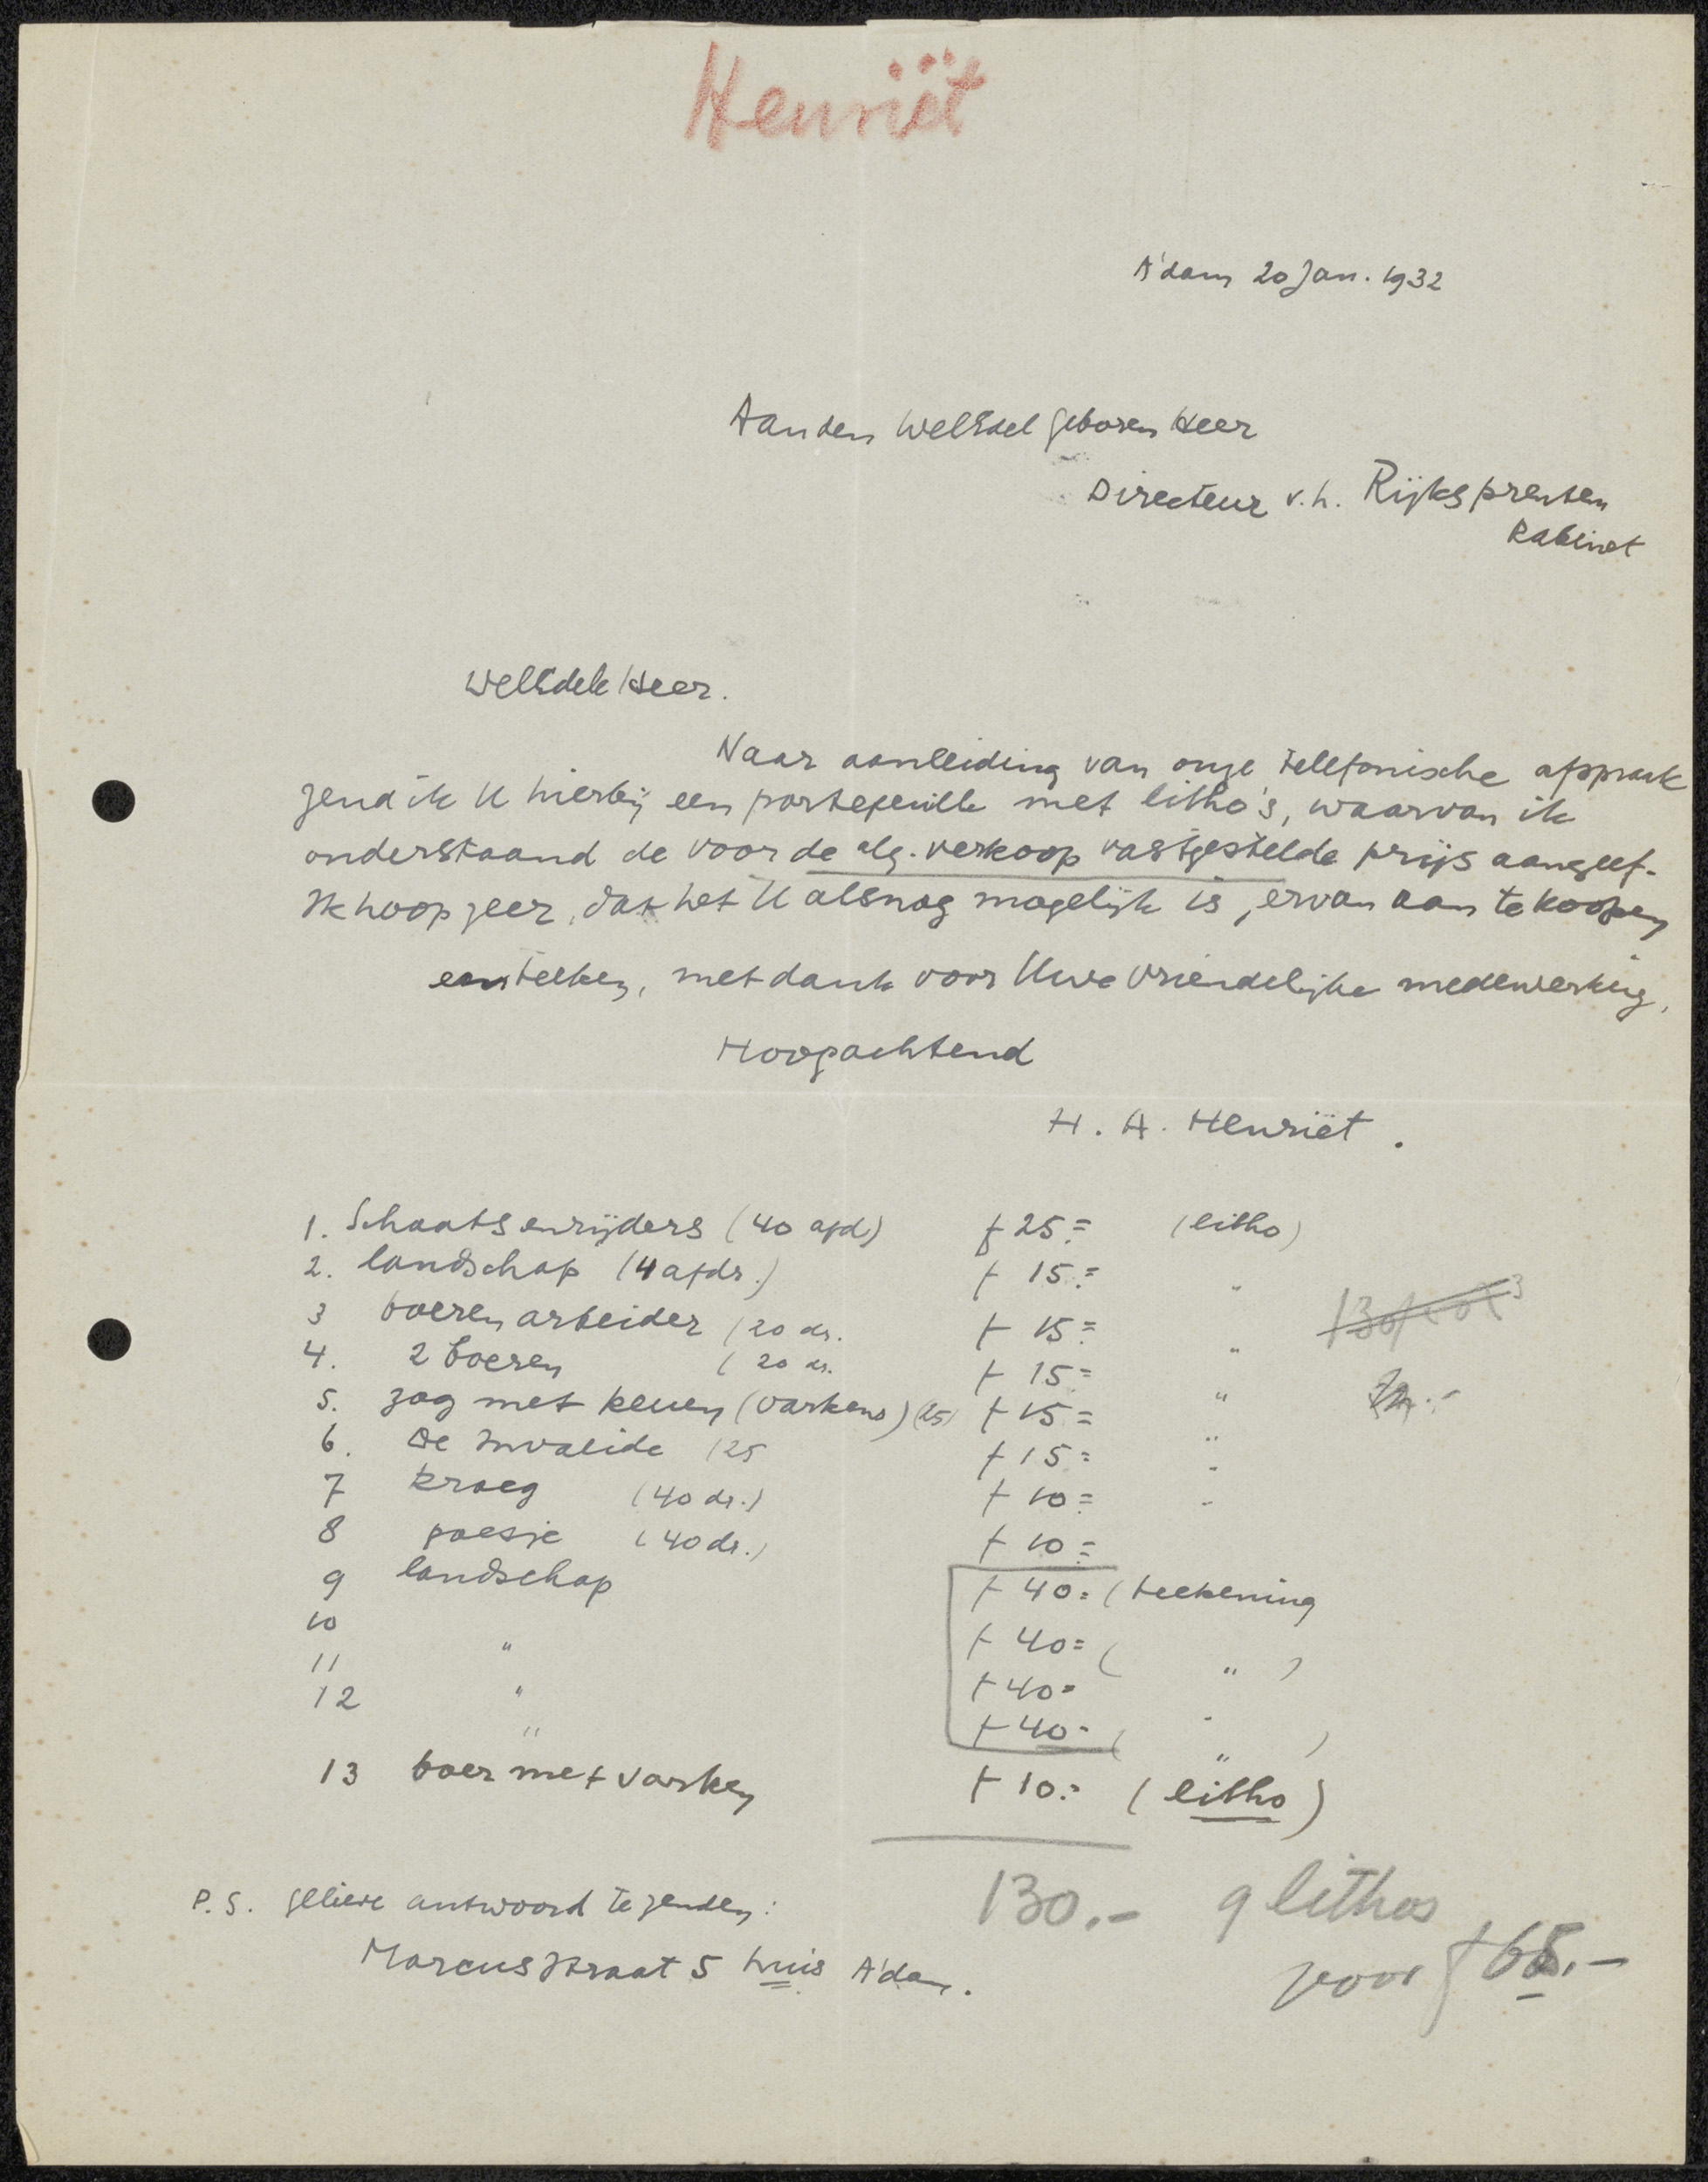 Henriët
A'dam 20 Jan. 1932
Aan den WelEdel geboren Heer
Directeur v.h. Rijksprenten
Kabinet
WelEdele Heer.
Naar aanleiding van onze telefonische afspraak
zend ik U hierbij een portefeuille met litho's, waarvan ik
onderstaand de voor de alg. verkoop vastgestelde prijs aangeef.
Ik hoop zeer, dat het U alsnog mogelijk is, ervan aan te koopen
en teeken, met dank voor Uwe vriendelijke medewerking,
Hoogachtend
H. A. Henriët.
1. Schaatsenrijders (40 afd.) f 25.= (litho)
2. landschap (4 afdr.) f 15.= "
3 boeren arbeider (20 dr. f 15.= "
4. 2 boeren (20 dr. f 15.= "
5. zog met keuen (varkens) (25) f 15.= "
6. De Invalide (25 f 15.= "
7 kroeg (40 dr.) f 10.= "
8 poesje (40 dr.) f 10.=
9 landschap f 40.= (teekening
10 " f 40.= ( " )
11 " f 40.= "
12 " f 40.= ( " )
13 boer met varken f 10.= (litho)
130.- 9 lithos
voor f 65.-
P.S. gelieve antwoord te zenden:
Marcusstraat 5 huis A'dam.